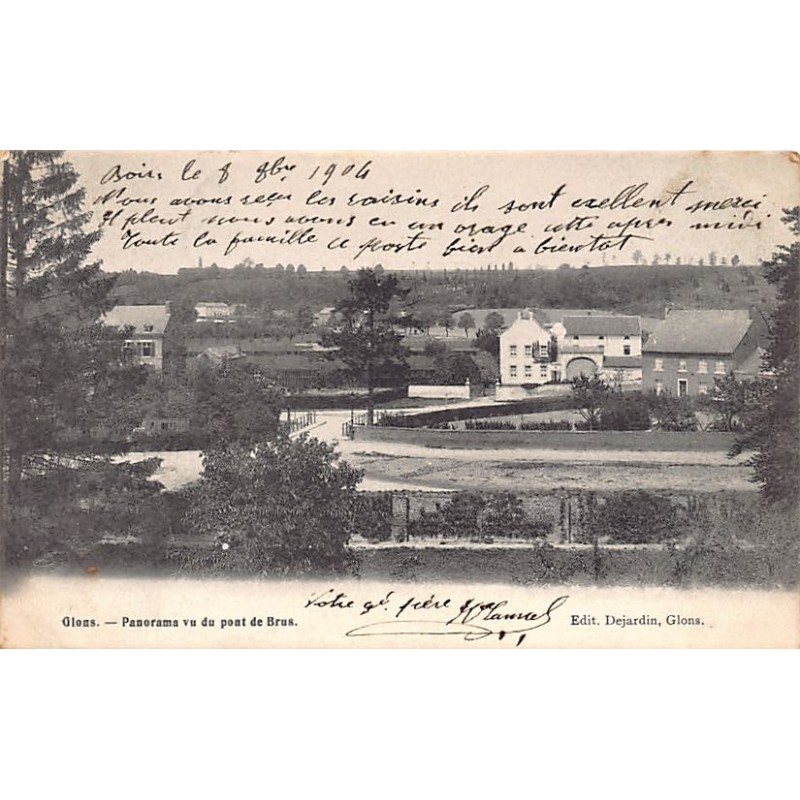 Boirs le 8 8bre 1904
Nous avons reçu les raisins ils sont exellent merci
Il pleut nous avons eu un orage cette apres midi
Toute la famille ce porte bien a bientot
Votre gd père
Glons. — Panorama vu du pont de Brus.
Edit. Dejardin, Glons.